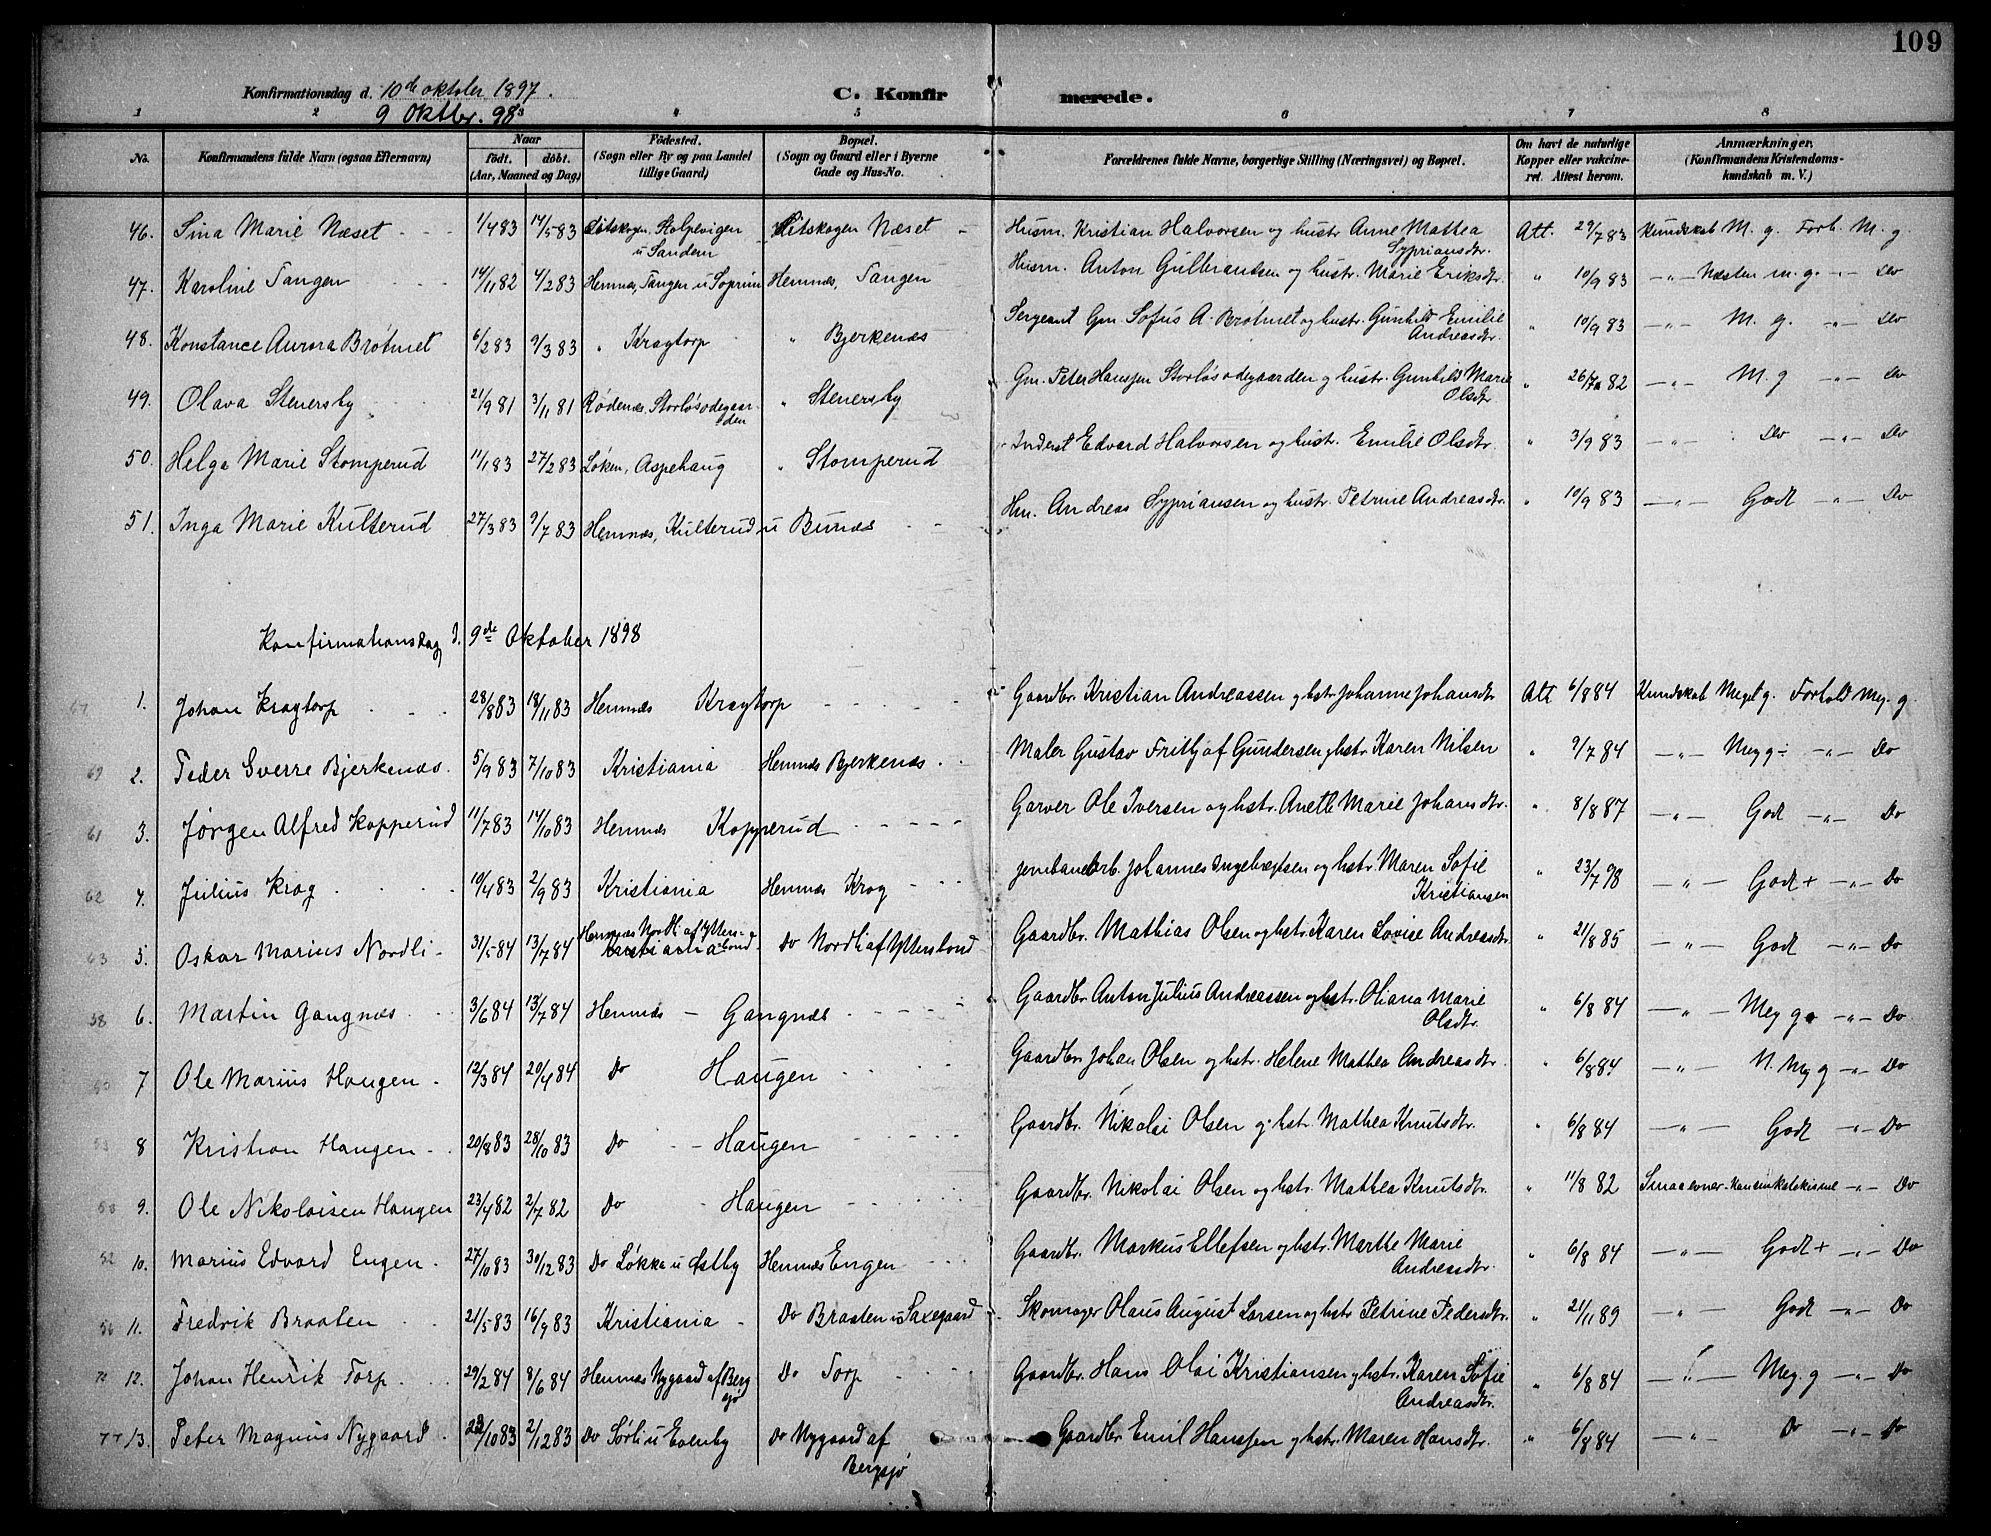 109
Konfirmationsdag d. 10de oktober 1897.
9 Oktbr. 98
C. Konfir merede.
1 2 3 4 5 6 7 8
No. Konfirmandens fulde Navn (ogsaa Efternavn) Naar født. døbt. (Aar, Maaned og Dag) Fødested. (Sogn eller By og paa Landet tillige Gaard) Bopæl. (Sogn og Gaard eller i Byerne Gade og Hus-No. Forældrenes fulde Navne, borgerlige Stilling (Næringsvei) og Bopæl. Om havt de naturlige Kopper eller vakcineret. Attest herom. Anmærkninger. (Konfirmandens Kristendomskundskab m. V.)
46. Sina Marie Næset 1/4 83 14/5 83 Sitskogen, Stolpevigen u Sanden Sitskogen Næset Husm. Kristian Halvorsen og hustr. Anne Mathea Sypriansdtr. Att. 29/7 83 Kundskab M. g. Forh. M. g
47. Karoline Tangen 14/11 82 4/2 83 Hemnæs, Tangen u Soprim Hemnæs, Tangen Husm. Anton Gulbrandsen og hustr. Marie Eriksdtr. " 10/9 83 —"— Næsten m. g. —"— Do
48. Konstance Aurora Brøtmet 6/2 83 9/3 83 " Kragtorp " Bjerkenæs Sergeant Gm. Sofus A. Brøtmet og hustr. Gunhild Emilie Andreasdtr. " 10/9 83 —"— M. g. —"— Do
49. Olava Stenersby 21/9 81 3/11 81 Rødenæs, Storløsødegaarden " Stenersby Gm. Peter Hanssen Storløsødegaarden og hustr. Gunhild Marie Olsdtr " 26/7 82 —"— M. g —"— Do
50. Helga Marie Stomperud 11/1 83 27/2 83 Løken, Aspehaug " Stomperud Inderst Edvard Halvorsen og hustr. Emilie Olsdtr. " 3/9 83 —"— Do —"— Do
51. Inga Marie Kulterud 27/3 83 9/7 83 Hemnæs, Kulterud u Bunæs Hm. Andreas Sypriansen og hustr. Petrine Andreasdtr. " 10/9 83 —"— Godt —"— Do
Konfirmationsdag d. 9de Oktober 1898
1. Johan Kragtorp 28/8 83 18/11 83 Hemnæs Kragtorp Gaardbr. Kristian Andreassen og hstr. Johanne Johansdtr Att 6/8 84 Kundskab Meget g. Forhold Meg. g.
69 2. Peder Sverre Bjerkenæs. 5/9 83 7/10 83 Kristiania Hemnæs Bjerkenæs Maler Gustav Fritjof Gundersen og hstr. Karen Nilsen " 9/7 84 —"— Meg g ÷ —"— Do
61 3. Jørgen Alfred Kopperud 11/7 83 14/10 83 Hemnæs Kopperud Garver Ole Iversen og hstr. Anette Marie Johansdtr. " 8/8 87 —"— Godt —"— Do
62 4. Julius Krog 10/4 83 2/9 83 Kristiania Hemnæs Krog Jernbanearb. Johannes Ingebregtsen og hstr. Maren Sofie Kristiansen " 23/7 98 —"— Godt + —"— Do
63 5. Oskar Marius Nordli 31/5 84 13/7 84 Hemnæs Nordli af Ytterslbond Do Nordli af Ytterslbond Gaardbr. Mathias Olsen og hstr. Karen Lovise Andreasdtr. " 21/8 85 —"— Godt —"— Do
58 6. Martin Gangnæs 3/6 84 13/7 84 Hemnæs — Gangnæs Gaardbr. Anton Julius Andreassen og hstr. Oliana Marie Olsdtr. " 6/8 84 —"— Meg g. —"— Do
7 Ole Marius Haugen 12/3 84 20/4 84 Do Haugen Gaardbr. Johan Olsen og hstr. Helene Mathea Andreasdtr. " 6/8 84 —"— N. Meg g —"— Do
53 8 Kristian Haugen 20/8 83 28/10 83 Do — Haugen Gaardbr. Nikolai Olsen og hstr. Mathea Knutsdtr. " 6/8 84 —"— Godt —"— Do
9. Ole Nikolaisen Haugen 23/4 82 2/7 82 Do - Haugen Gaardbr. Nikolai Olsen og hstr. Mathea Knutsdtr. " 11/8 82 Smaa evner —"— Do
52 10. Marius Edvard Engen 27/10 83 30/12 83 Do Løkka u Østby Hemnæs Engen Gaardbr. Markus Ellefsen og hstr. Marthe Marie Andreasdtr. " 6/8 84 —"— Godt + —"— Do
56 11. Fredrik Braaten 21/5 83 16/9 83 Kristiania Do Braaten u Saxegaard Skomager Olaus August Larsen og hstr. Petrine Pedersdtr. " 21/11 89 —"— Godt —"— Do
12. Johan Henrik Torp 29/2 84 8/6 84 Hemnæs Nygaard af Bergsjø Do Torp Gaardbr. Hans Olai Kristiansen og hstr. Karen Sofie Andreasdtr. " 6/8 84 —"— Meg. g —"— Do
77 13. Peter Magnus Nygaard 23/10 83 2/12 83 Do Sørli u Evenby Do Nygaard af Bergsjø Gaardbr. Emil Hanssen og hstr. Maren Hansdtr. " 6/8 84 —"— Do —"— Do